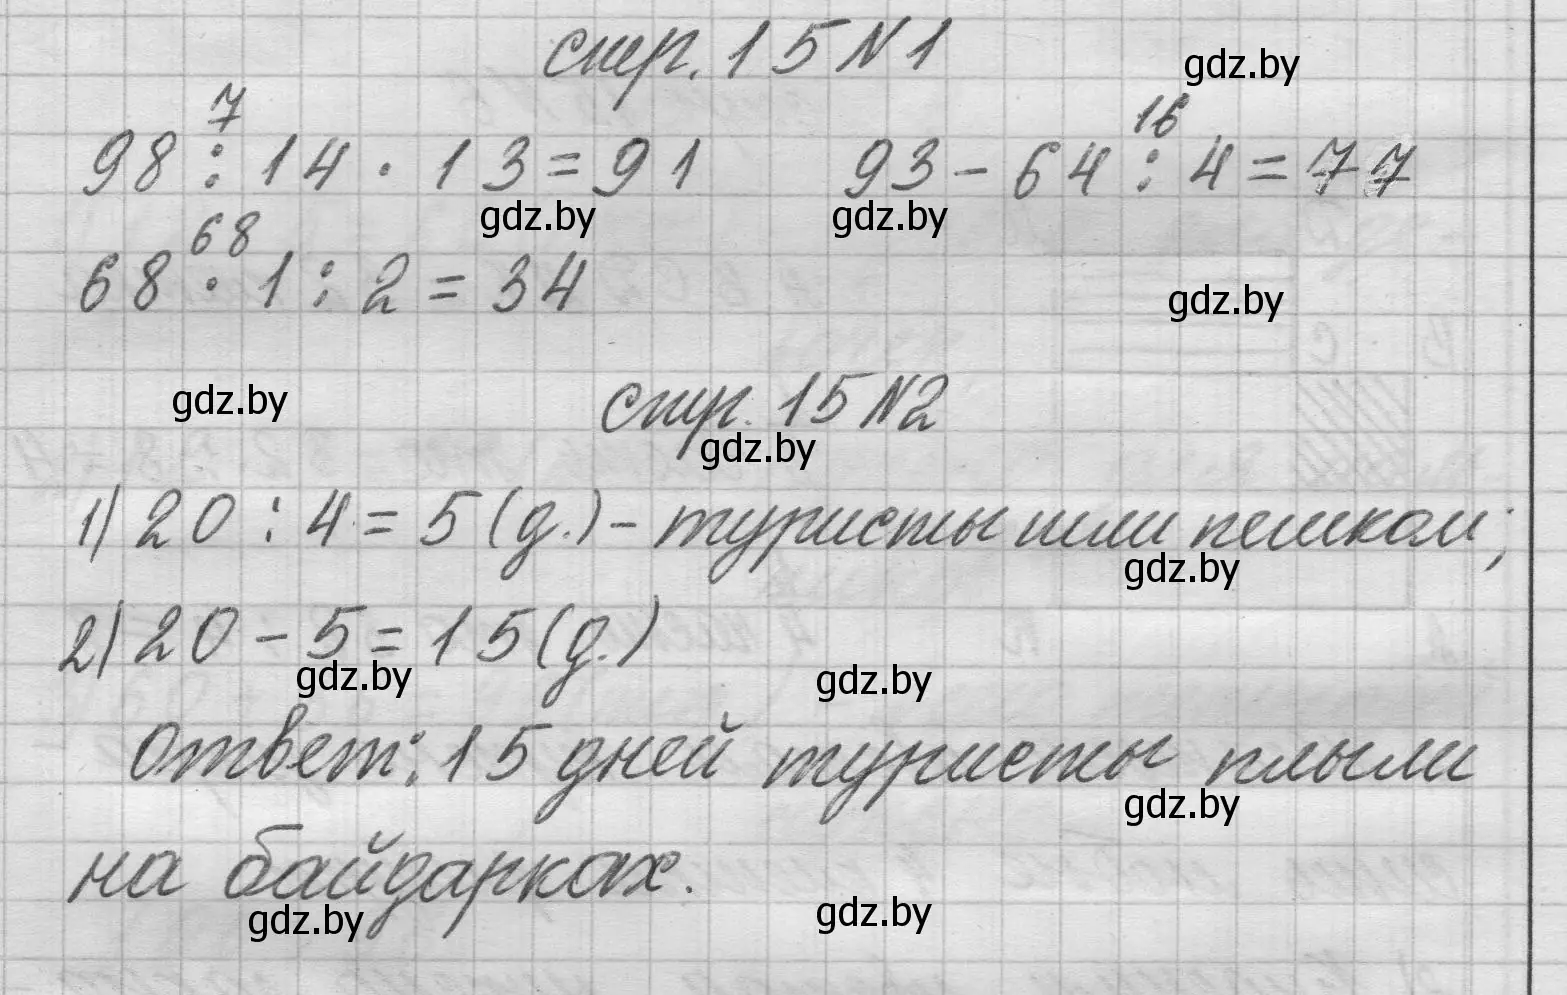 стр. 15 N 1
gdz.by
7
16
98 : 14 · 13 = 91 93 - 64 : 4 = 77
gdz.by gdz.by
68
68 · 1 : 2 = 34
gdz.by
gdz.by
стр. 15 N2
gdz.by
1) 20 : 4 = 5 (д.) - туристы шли пешком;
gdz.by
2) 20 - 5 = 15 (д.)
gdz.by gdz.by
Ответ: 15 дней туристы плыли
gdz.by
на байдарках.
gdz.by gdz.by